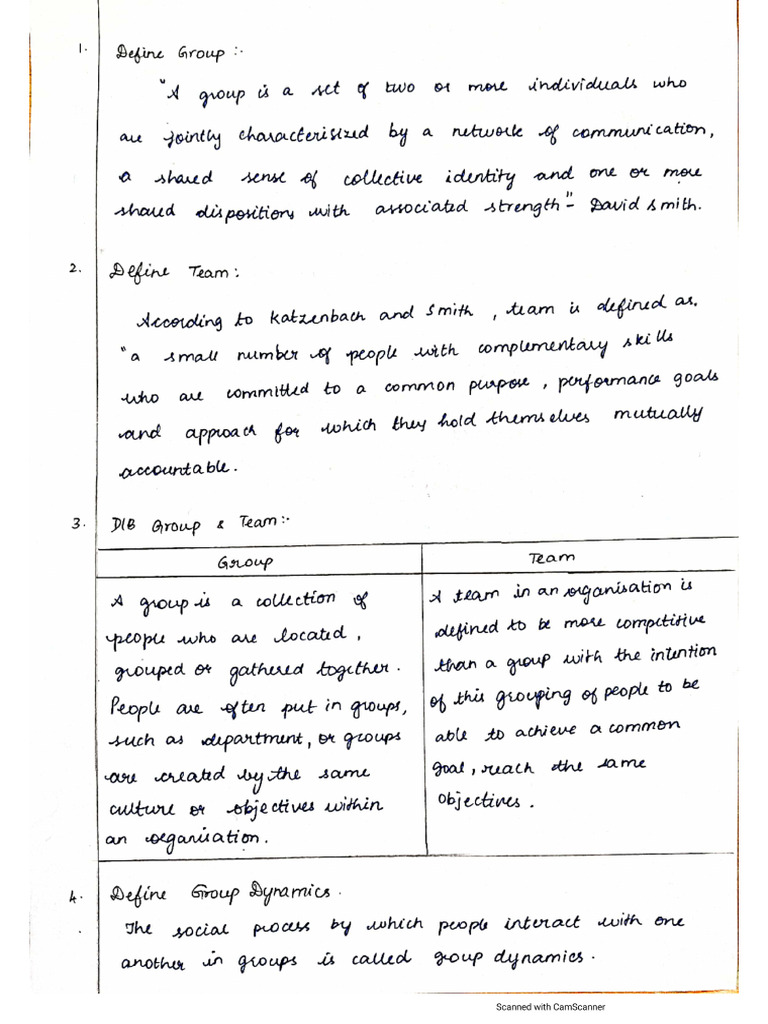 1. Define Group :-
"A group is a set of two or more individuals who
are jointly characterisized by a network of communication,
a shared sense of collective identity and one or more
shared dispositions with associated strength" - David Smith.
2. Define Team :
According to Katzenbach and Smith, team is defined as.
"a small number of people with complementary skills
who are committed to a common purpose, performance goals
and approach for which they hold themselves mutually
accountable.
3. D/B Group & Team :-
Group
A group is a collection of
people who are located,
grouped or gathered together.
People are often put in groups,
such as department, or groups
are created by the same
culture or objectives within
an organisation.
Team
A team in an organisation is
defined to be more competitive
than a group with the intention
of this grouping of people to be
able to achieve a common
goal, reach the same
objectives.
4. Define Group Dynamics.
The social process by which people interact with one
another in groups is called group dynamics.
Scanned with CamScanner